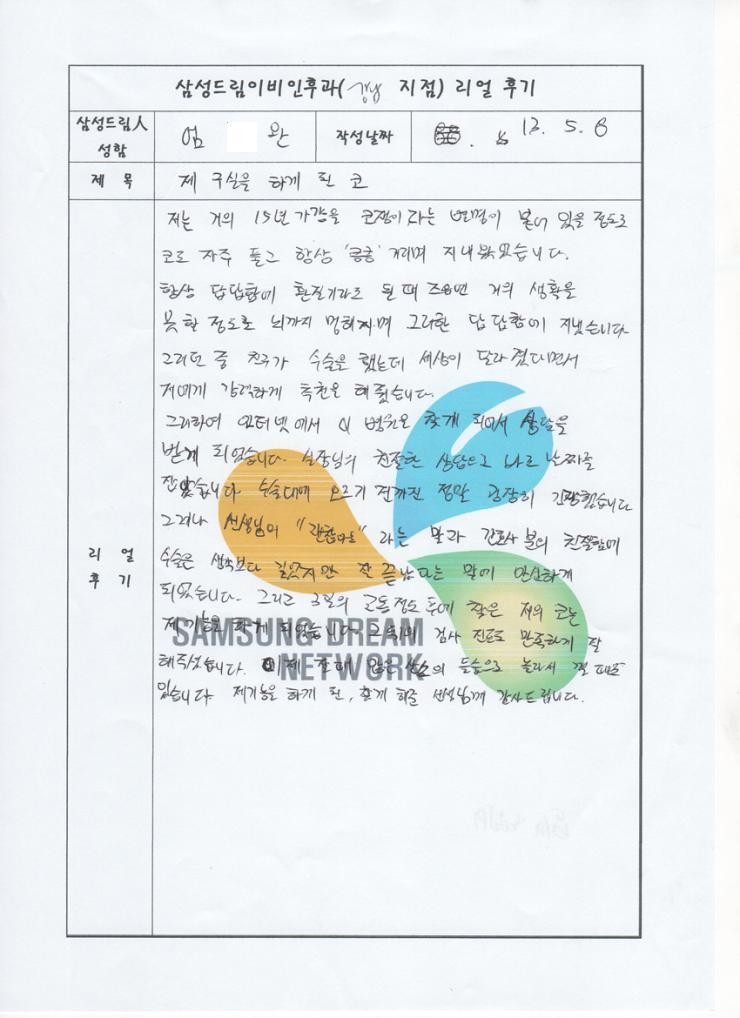 삼성드림이비인후과(강남 지점) 리얼 후기
삼성드림人 성함
엄 완
작성날짜
13. 5. 6
제 목
제 구실을 하게 된 코
리 얼 후 기
저는 거의 15년 가량을 코쟁이라는 별명이 붙어 있을 정도로
코로 자주 풀고 항상 '킁킁' 거리며 지내왔었습니다.
항상 답답함에 환절기라도 될 때 즈음엔 거의 생활을
못할 정도로 뇌까지 멍해지며 그러한 답답함에 지냈습니다
그러던 중 친구가 수술을 했는데 세상이 달라졌다면서
저에게 강력하게 추천을 해줬습니다.
그리하여 인터넷에서 이 병원을 찾게 되어서 상담을
받게 되었습니다. 실장님의 친절한 상담으로 바로 날짜를
잡았습니다 수술대에 오르기 전까진 정말 굉장히 긴장했습니다
그러나 선생님의 라는 말과 간호사 분의 친절함에
수술은 생각보다 길었지만 잘 끝났다는 말에 안심하게
되었습니다. 그리고 3일의 고통 정도 후에 찾은 저의 코는
제기능을 하게 되었습니다 검사 진료로 만족하게 잘
해주셨습니다. 이제 잘때 많은 산소의 들숨으로 놀라서 깰 때도
있습니다 제기능을 하게 된, 찾게 해준 선생님께 감사드립니다.
SAMSUNG DREAM
NETWORK